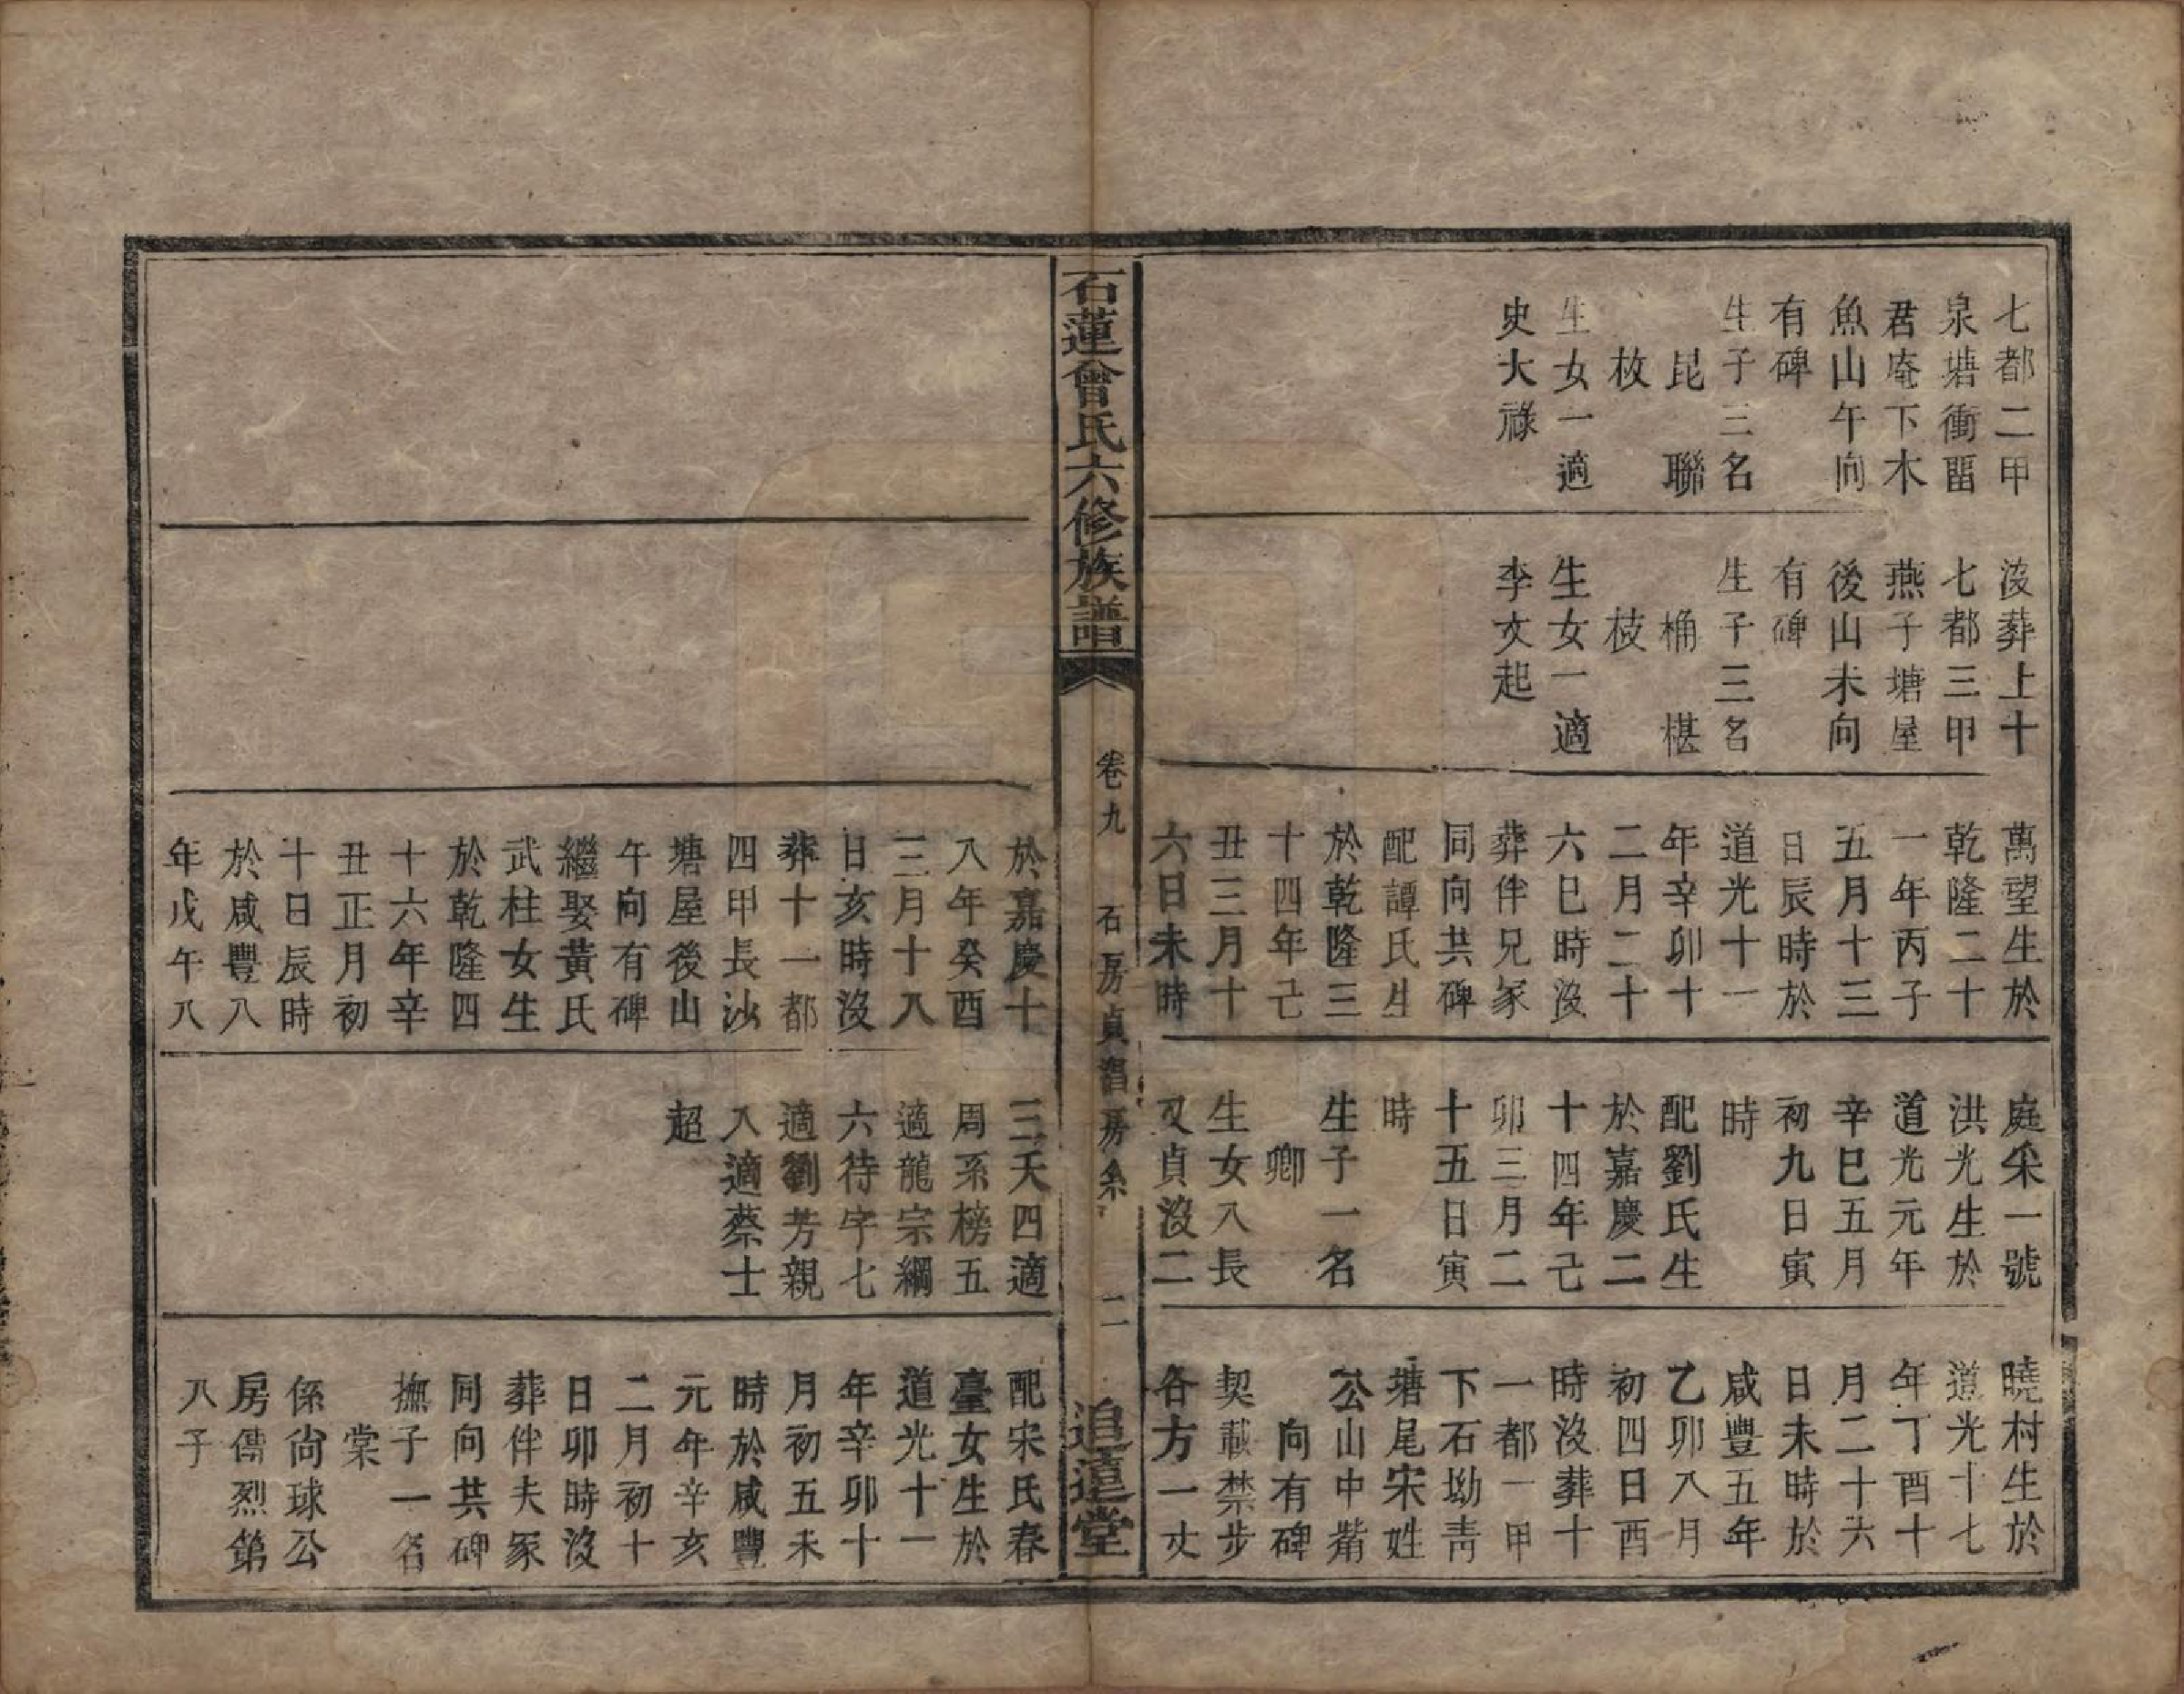 七都二甲
泉塘衝畱
君庵下木
魚山午向
有碑
生子三名
昆 聯
枚
生女一適
史大祿
沒葬上十
七都三甲
燕子塘屋
後山未向
有碑
生子三名
桷 椹
枝
生女一適
李文起
萬望生於
乾隆二十
一年丙子
五月十三
日辰時於
道光十一
年辛卯十
二月二十
六巳時沒
葬伴兄冢
同向共碑
配譚氏生
於乾隆三
十四年己
丑三月十
六日未時
庭采一號
洪光生於
道光元年
辛巳五月
初九日寅
時
配劉氏生
於嘉慶二
十四年己
卯三月二
十五日寅
時
生子一名
卿
生女八長
及貞沒二
曉村生於
道光十七
年丁酉十
月二十六
日未時於
咸豐五年
乙卯八月
初四日酉
時沒葬十
一都一甲
下石坳靑
塘尾宋姓
公山中觜
向有碑
契載禁步
各方一丈
石蓮曾氏六修族譜
卷九
石房貞習房系
二
追遠堂
於嘉慶十
八年癸酉
三月十八
日亥時沒
葬十一都
四甲長沙
塘屋後山
午向有碑
繼娶黃氏
武柱女生
於乾隆四
十六年辛
丑正月初
十日辰時
於咸豐八
年戊午八
三夭四適
周系榜五
適龍宗綱
六待字七
適劉芳親
八適蔡士
超
配宋氏春
臺女生於
道光十一
年辛卯十
月初五未
時於咸豐
元年辛亥
二月初十
日卯時沒
葬伴夫冢
同向共碑
撫子一名
棠
係尙球公
房傳烈第
八子